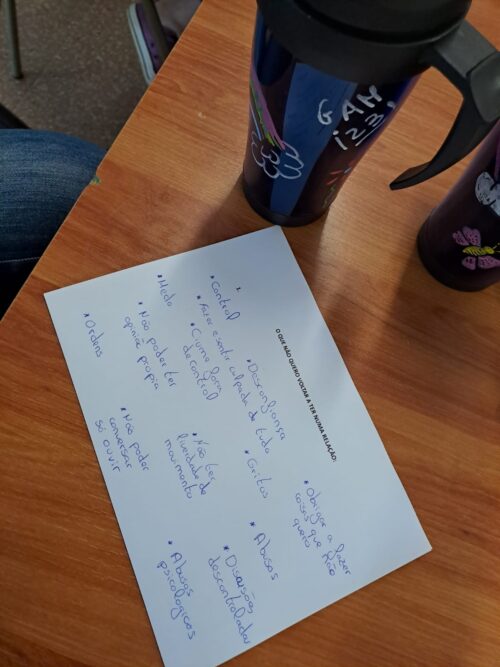 O QUE NÃO QUERO VOLTAR A TER NUMA RELAÇÃO:
* Control
* Desconfiança
* Obrigar a fazer
coisas que não
quero
* Fazer e sentir culpada de tudo
* Gritos
* Ciume forma
de control
* Abusos
* Medo
* Não ter
liverdade de
movimento
* Discusões
descontroladas
* Não poder ter
opinião propia
* Abusos
psicologicos
* Não poder
conversar
só ouvir
* Ordens
GAM
123